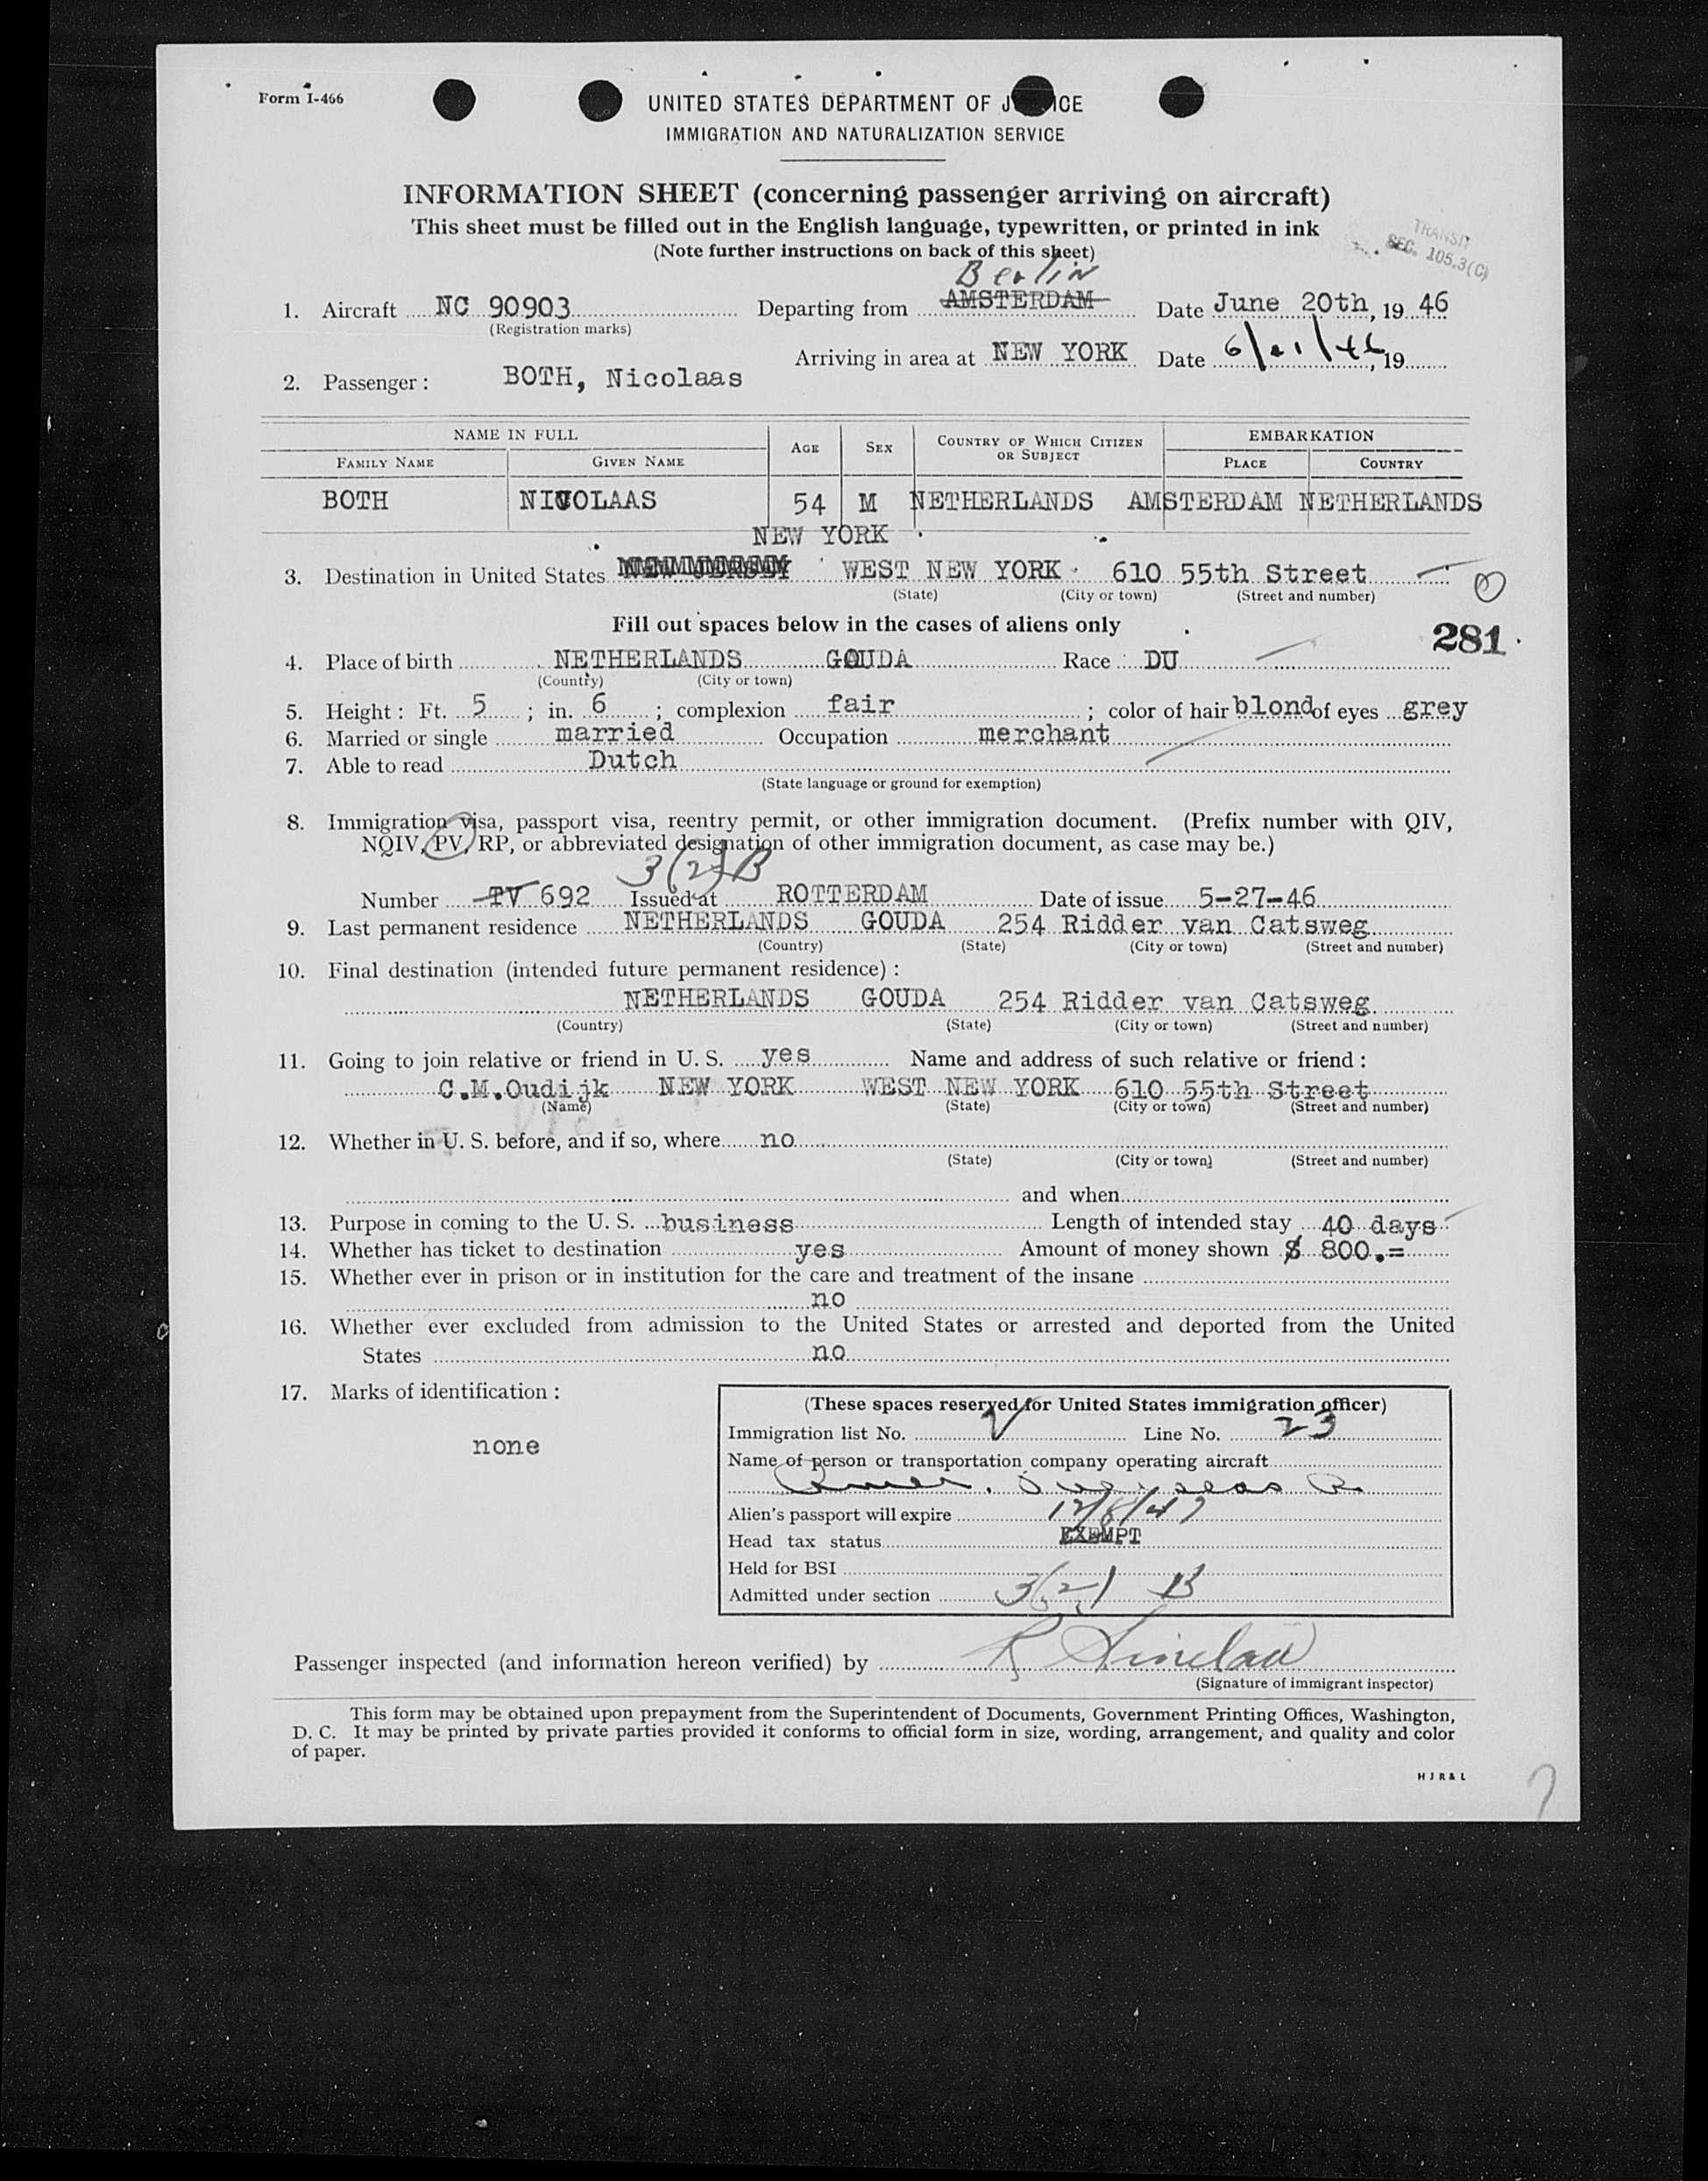 Form I-466
UNITED STATES DEPARTMENT OF J ICE
IMMIGRATION AND NATURALIZATION SERVICE
INFORMATION SHEET (concerning passenger arriving on aircraft)
This sheet must be filled out in the English language, typewritten, or printed in ink
(Note further instructions on back of this sheet)
TRANSIT
SEC. 105.3(C)
Berlin
1. Aircraft NC 90903 Departing from AMSTERDAM Date June 20th, 19 46
(Registration marks)
Arriving in area at NEW YORK Date 6/21/46, 19
2. Passenger: BOTH, Nicolaas
NAME IN FULL AGE SEX COUNTRY OF WHICH CITIZEN OR SUBJECT EMBARKATION
FAMILY NAME GIVEN NAME PLACE COUNTRY
BOTH NICOLAAS 54 M NETHERLANDS AMSTERDAM NETHERLANDS
NEW YORK
3. Destination in United States NEW JERSEY WEST NEW YORK 610 55th Street
(State) (City or town) (Street and number)
Fill out spaces below in the cases of aliens only
281
4. Place of birth NETHERLANDS GOUDA Race DU
(Country) (City or town)
5. Height: Ft. 5; in. 6; complexion fair; color of hair blond of eyes grey
6. Married or single married Occupation merchant
7. Able to read Dutch
(State language or ground for exemption)
8. Immigration visa, passport visa, reentry permit, or other immigration document. (Prefix number with QIV,
NQIV, PV, RP, or abbreviated designation of other immigration document, as case may be.)
3(2)B
Number TV 692 Issued at ROTTERDAM Date of issue 5-27-46
9. Last permanent residence NETHERLANDS GOUDA 254 Ridder van Catsweg
(Country) (State) (City or town) (Street and number)
10. Final destination (intended future permanent residence):
NETHERLANDS GOUDA 254 Ridder van Catsweg
(Country) (State) (City or town) (Street and number)
11. Going to join relative or friend in U. S. yes Name and address of such relative or friend:
C.M.Oudijk NEW YORK WEST NEW YORK 610 55th Street
(Name) (State) (City or town) (Street and number)
12. Whether in U. S. before, and if so, where no
(State) (City or town) (Street and number)
and when
13. Purpose in coming to the U. S. business Length of intended stay 40 days
14. Whether has ticket to destination yes Amount of money shown $ 800.=
15. Whether ever in prison or in institution for the care and treatment of the insane
no
16. Whether ever excluded from admission to the United States or arrested and deported from the United
States no
17. Marks of identification:
none
(These spaces reserved for United States immigration officer)
Immigration list No. V Line No. 23
Name of person or transportation company operating aircraft
Amer. Overseas A.
Alien's passport will expire 12/8/47
Head tax status EXEMPT
Held for BSI
Admitted under section 3(2) B
Passenger inspected (and information hereon verified) by R Sinclair
(Signature of immigrant inspector)
This form may be obtained upon prepayment from the Superintendent of Documents, Government Printing Offices, Washington,
D. C. It may be printed by private parties provided it conforms to official form in size, wording, arrangement, and quality and color
of paper.
H J R & L